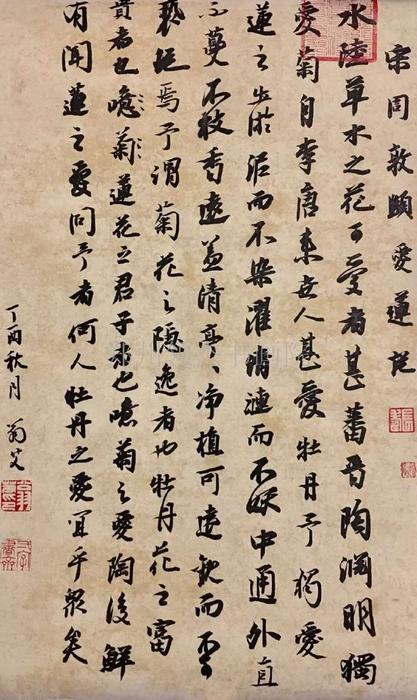 宋周敦頤愛蓮説
水陸草木之花可愛者甚蕃晉陶淵明獨
愛菊自李唐來世人甚愛牡丹予獨愛
蓮之出淤泥而不染濯清漣而不妖中通外直
不蔓不枝香遠益清亭〻净植可遠觀而不可
褻玩焉予謂菊花之隱逸者也牡丹花之富
貴者也噫菊蓮花之君子者也噫菊之愛陶後鮮
有聞蓮之愛同予者何人牡丹之愛宜乎衆矣
丁酉秋月 翁艾